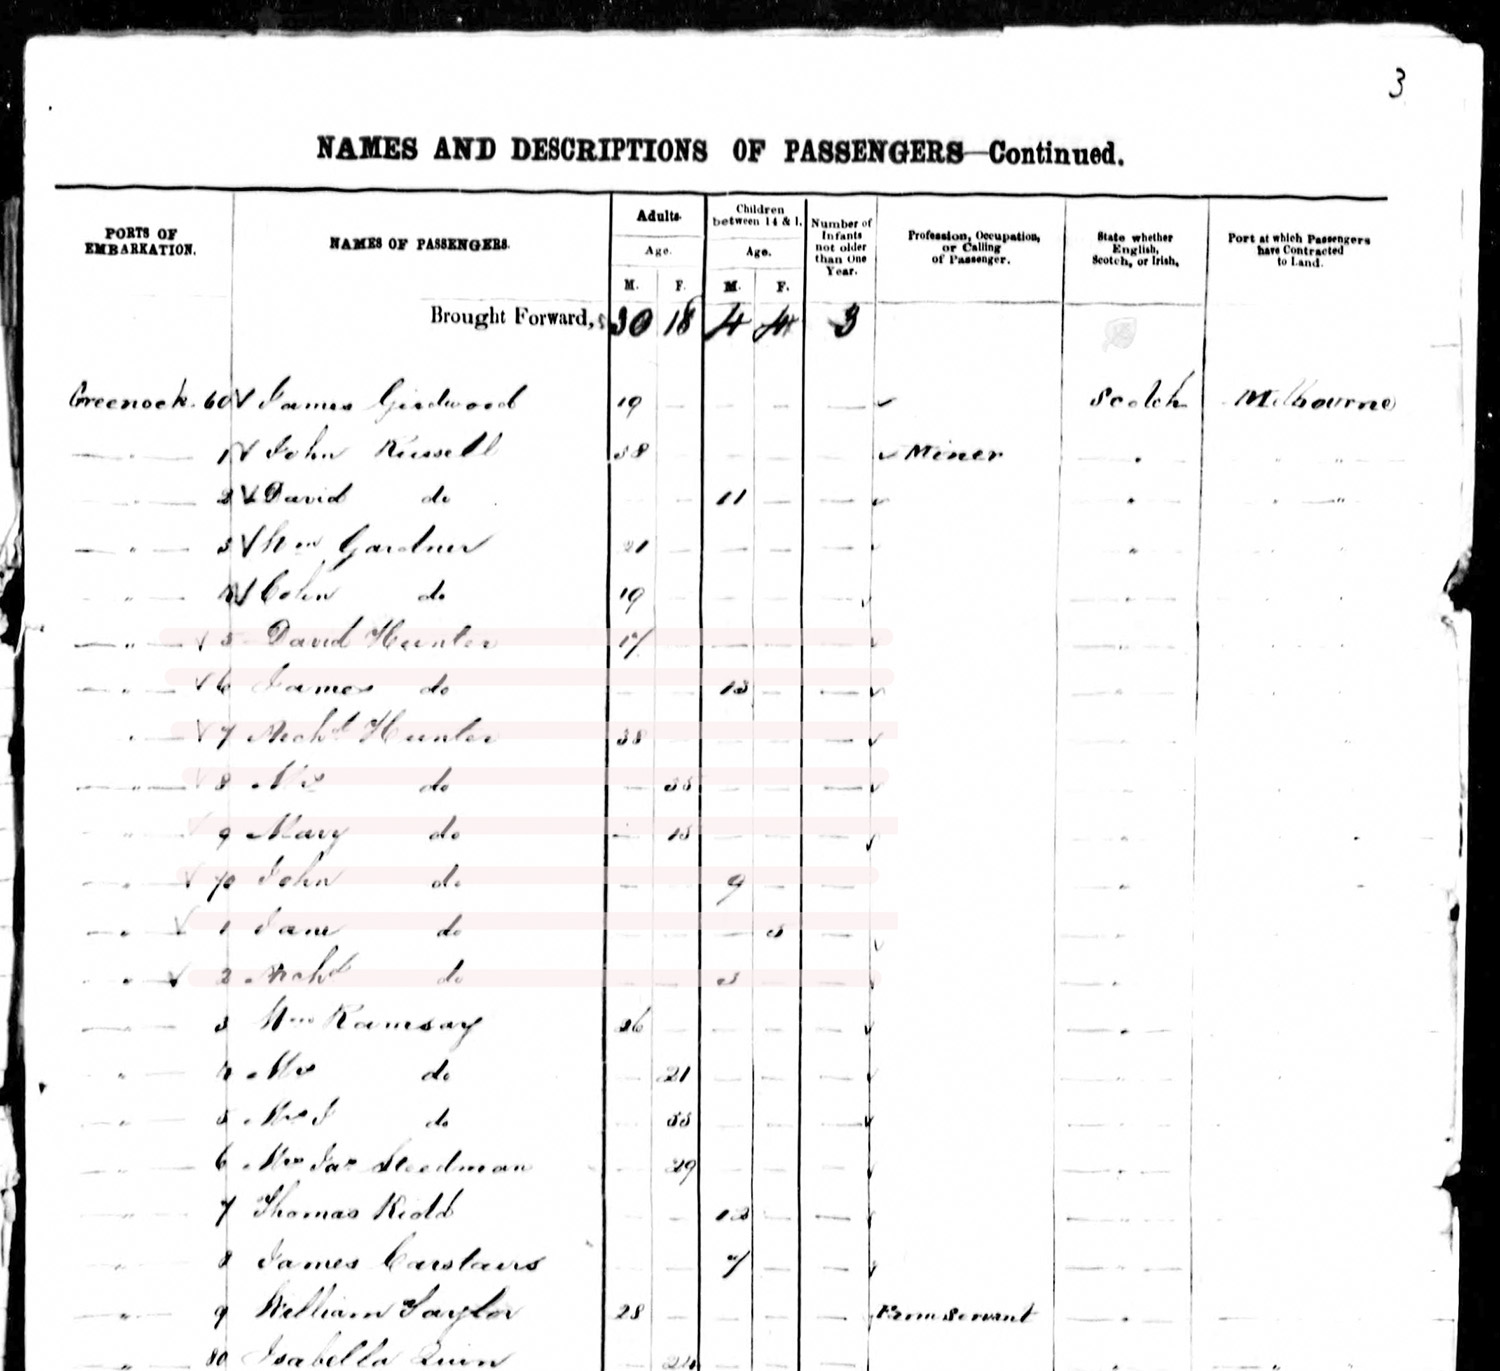 3
NAMES AND DESCRIPTIONS OF PASSENGERS—Continued.
PORTS OF EMBARKATION. NAMES OF PASSENGERS. Adults. Age. M. F. Children between 14 & 1. Age. M. F. Number of Infants not older than One Year. Profession, Occupation, or Calling of Passenger. State whether English, Scotch, or Irish. Port at which Passengers have Contracted to Land.
Brought Forward, 30 18 4 4 3
Greenock 60 √ James Girdwood 19 — — — — Scotch Melbourne
— " — 1 √ John Russell 38 — — — — Miner
— " — 2 √ David do — — 11 — —
— " — 3 √ Wm Gardner 21 — — — —
— " — 4 √ Colin do 19 — — — —
— " — √ 5 David Hunter 17 — — — —
— " — √ 6 James do — — 13 — —
— " — √ 7 Archd Hunter 38 — — — —
— " — √ 8 Mrs do — 35 — — —
— " — √ 9 Mary do — 15 — — —
— " — √ 70 John do — — 9 — —
— " — √ 1 Jane do — — — 5 —
— " — √ 2 Archd do — — 3 — —
— " — 3 Wm Ramsay 26 — — — —
— " — 4 Mrs do — 21 — — —
— " — 5 Mrs J do — 53 — — —
— " — 6 Mrs Jas Steedman — 29 — — —
— " — 7 Thomas Kidd — — 12 — —
— " — 8 James Carstairs — — 7 — —
— " — 9 William Taylor 28 — — — — Farm Servant
80 Isabella Quin — 24